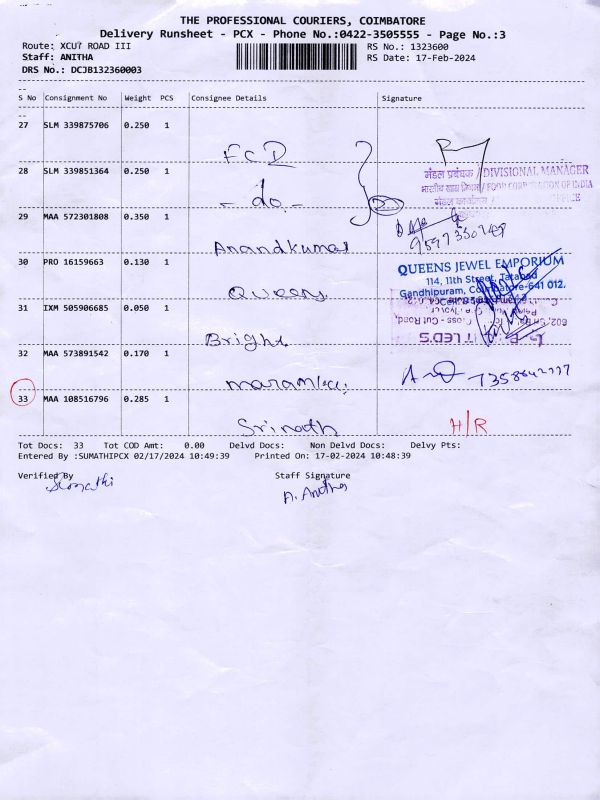 THE PROFESSIONAL COURIERS, COIMBATORE
Delivery Runsheet - PCX - Phone No.:0422-3505555 - Page No.:3
Route: XCUT ROAD III RS No.: 1323600
Staff: ANITHA RS Date: 17-Feb-2024
DRS No.: DCJB132360003
S No Consignment No Weight PCS Consignee Details Signature
27 SLM 339875706 0.250 1
FCI
28 SLM 339851364 0.250 1
मंडल प्रबंधक / DIVISIONAL MANAGER
/ FOOD CORPORATION OF INDIA
- do -
OFFICE
29 MAA 572301808 0.350 1
Anandkumar
30 PRO 16159663 0.130 1
QUEENS JEWEL EMPORIUM
114, 11th Street, Tatabad
Gandhipuram, Coimbatore-641 012.
Queens
31 IXM 505906685 0.050 1
602,
Cross - Cut Road,
Bright
IT LED'S
32 MAA 573891542 0.170 1
33 MAA 108516796 0.285 1
Srinath H/R
Tot Docs: 33 Tot COD Amt: 0.00 Delvd Docs: Non Delvd Docs: Delvy Pts:
Entered By :SUMATHIPCX 02/17/2024 10:49:39 Printed On: 17-02-2024 10:48:39
Verified By Staff Signature
Sumathi A. Anitha